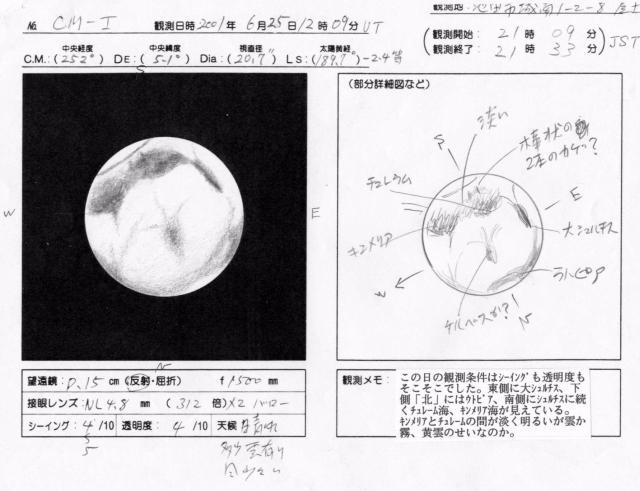 No. CM-I 観測日時 2001年 6月25日12時09分UT
観測地: 池田市城南1-2-8 屋上
(観測開始: 21時 09分)
(観測終了: 21時 33分) JST
中央経度 中央緯度 視直径 太陽黄経
C.M.:(252°) DE:(5.1°) Dia:(20.7") LS:(189.7°) -2.4等
S
W
E
N
(部分詳細図など)
淡い
棒状の
2本のカゲ?
S
チュレウム
E
大シュルチス
キンメリア
W
N
望遠鏡: D.15cm (反射・屈折) f 1500 mm
接眼レンズ: NL4.8 mm (312倍)×2バロー
シーイング: 4/10 透明度: 4/10 天候 晴れ
5
観測メモ: この日の観測条件はシーイングも透明度も
そこそこでした。東側に大シュルチス、下
側「北」にはウトピア、南側にシュルチスに続
くチュレーム海、キンメリア海が見えている。
キンメリアとチュレームの間が淡く明るいが雲か
霧、黄雲のせいなのか。